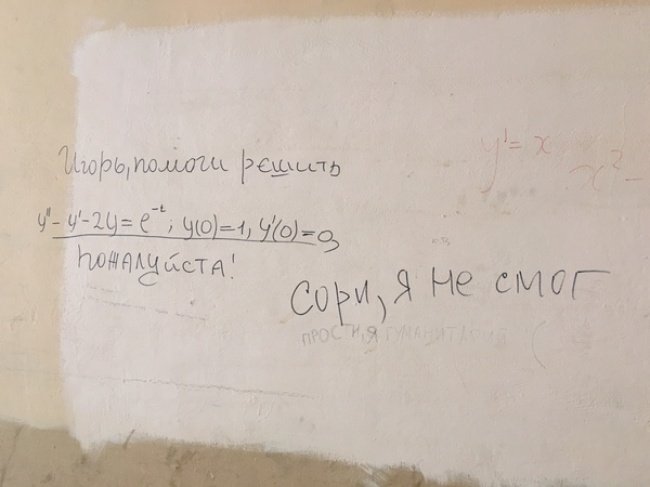 Игорь, помоги решить
y"-y'-2y=e^-t; y(0)=1, y'(0)=0,
пожалуйста!
y'=x
x²-
Сори, я не смог
ПРОСТИ, Я ГУМАНИТАРИЙ (